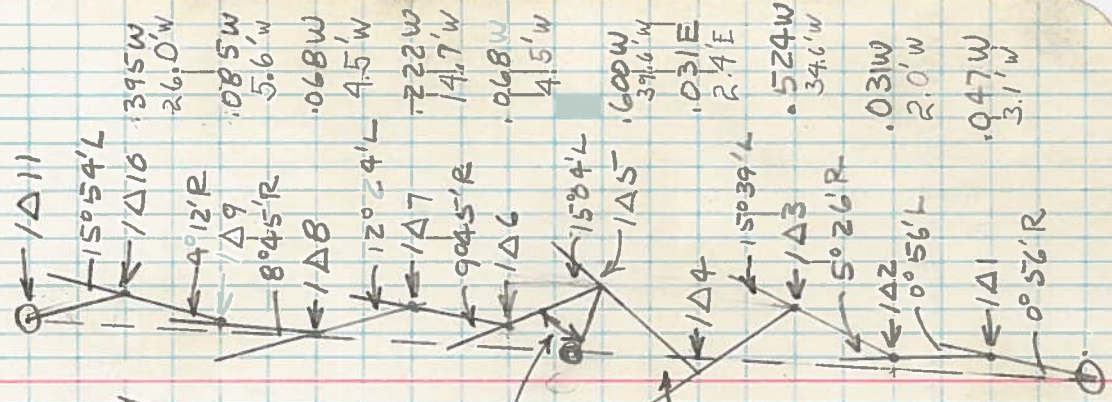 1△11
15°54'L
1△10
.395W
26.0'W
4°12'R
1△9
.085W
5.6'W
8°45'R
1△8
.068W
4.5'W
12°24'L
1△7
.222W
14.7'W
9°45'R
1△6
.068W
4.5'W
1△5
.600W
39.6'W
1△4
.031E
2.4'E
15°39'L
1△3
.524W
34.6'W
5°26'R
1△2
.031W
2.0'W
0°56'L
1△1
.047W
3.1'W
0°56'R